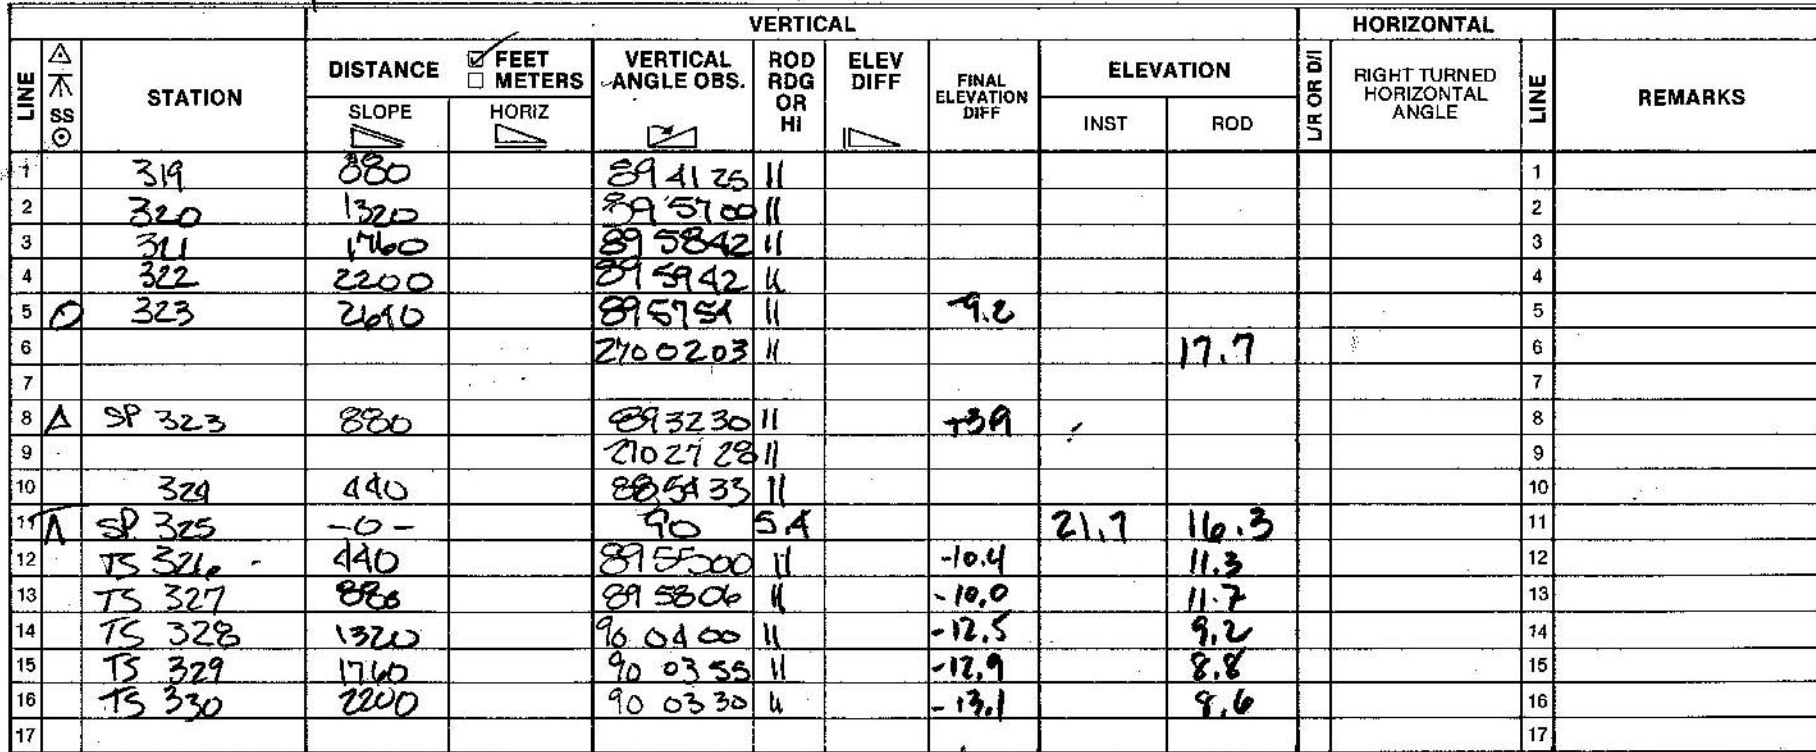 VERTICAL HORIZONTAL
LINE SS STATION DISTANCE FEET METERS SLOPE HORIZ VERTICAL ANGLE OBS. ROD RDG OR HI ELEV DIFF FINAL ELEVATION DIFF ELEVATION INST ROD L/R OR D/I RIGHT TURNED HORIZONTAL ANGLE LINE REMARKS
1 319 880 89 41 25 11 1
2 320 1320 89 57 00 11 2
3 321 1760 89 58 42 11 3
4 322 2200 89 59 42 11 4
5 323 2640 89 57 54 11 -9.2 5
6 270 02 03 11 17.7 6
7 7
8 SP 323 880 89 32 30 11 +3.9 8
9 270 27 28 11 9
10 324 440 88 54 33 11 10
11 SP 325 -0- 90 5.4 21.7 16.3 11
12 TS 326 440 89 55 00 11 -10.4 11.3 12
13 TS 327 880 89 58 06 11 -10.0 11.7 13
14 TS 328 1320 90 04 00 11 -12.5 9.2 14
15 TS 329 1760 90 03 55 11 -12.9 8.8 15
16 TS 330 2200 90 03 30 11 -13.1 8.6 16
17 17